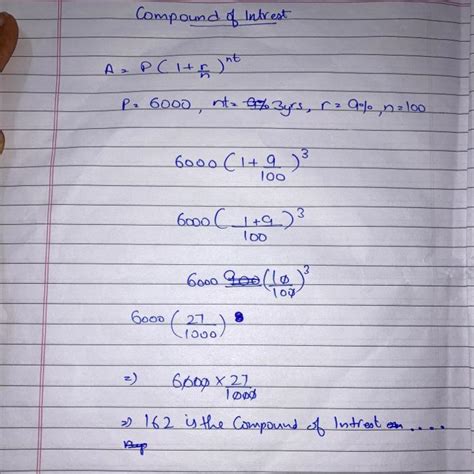 Compound of Intrest
A = P ( 1 + r/n )^nt
P = 6000 , nt = 3yrs , r = 9% , n = 100
6000 ( 1 + 9/100 )^3
6000 ( 1+9/100 )^3
6000 ( 10/100 )^3
6000 ( 27/1000 )
=) 6000 × 27/1000
=) 162 is the Compound of Intrest ....